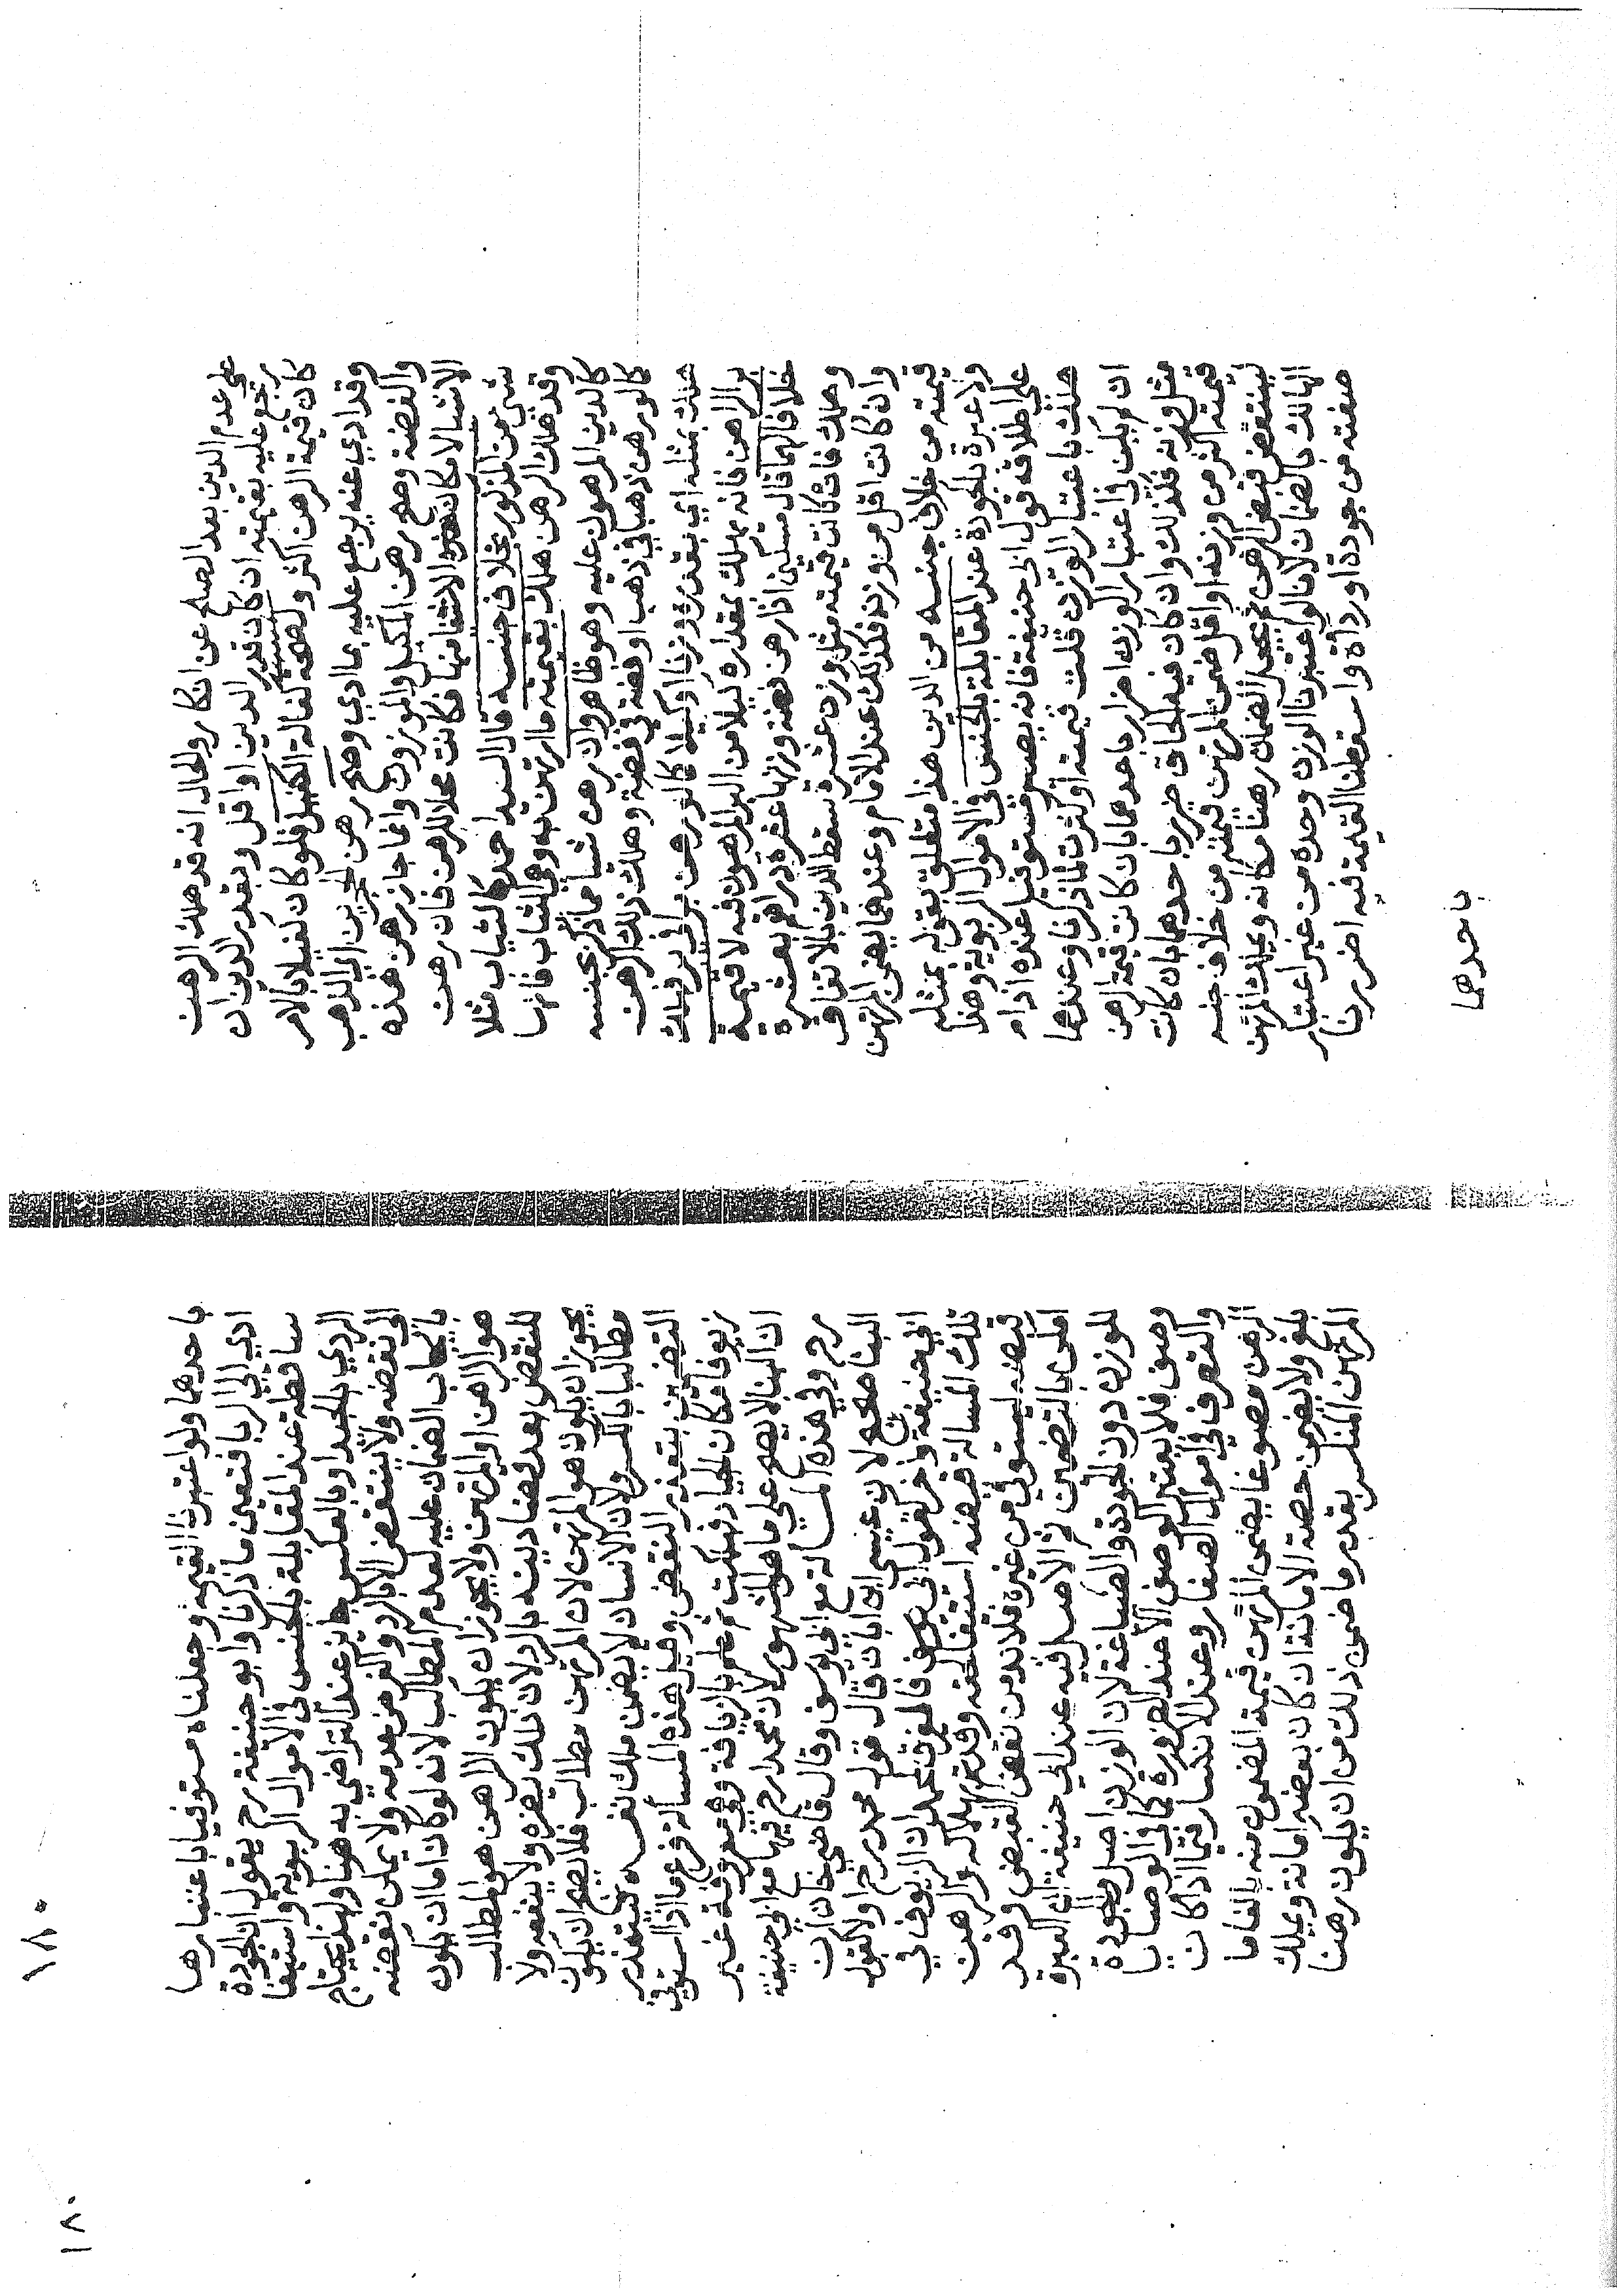 على عدم الدين بعد الصلح عن انكار والحال انه قد هلك الرهن
رجع عليه بقيمته ان كان قدر الدين او اقل وبقدر الدين ان
كان قيمة الرهن اكثر ولصحة كفالة الكفيل فلو كان كفيلا بالامر
وقد ادي عنه يرجع عليه بما ادي وصح رهن الحجرين اي الذهب
والفضة وصح رهن المكيل والموزون وانما جاز رهن هذه
الاشيا لامكان الاستيفا منها فكانت محلا للرهن فان رهن
شي من المذكور بخلاف جنسه قال السيد احمد كالثياب مثلا
وقد هلك الرهن هلك بقيمته ما ارتهن به وهي الثياب فانها
كالدين المرهون عليه وهو ظاهر وان رهن شيا مما ذكر بجنسه
كالو رهن ذهبا في ذهب او فضة في فضة وهلك ذلك الرهن
هلك بمثله اي بقدره وزنا او كيلا كالو رهن برا في بر فهلك
بر الراهن فانه يهلك بمقداره كيلا من البر المرهون فيه لا قيمة
خلافا لهما قال مسكين اذا رهن فضة وزنها عشرة دراهم بعشرة
وهلك فان كانت قيمته مثل وزن عشرة سقط الدين بالاتفاق
وان كانت اقل من وزنه فكذلك عند الامام وعندهما يضمن المرتهن
قيمته من خلاف جنسه من الدين هذا متعلق بقوله بمثله
ولا عبرة بالجودة عند المقابلة بالجنس في الاموال الربوية وهذا
على اطلاقه قول ابي حنيفة فانه يصير مستوفيا عنده اذا
هلك باعتبار الوزن قلت قيمته او كثرت لما ذكرنا وعندهما
ان لم يكن في اعتبار الوزن اضرار باحدهما بان كانت قيمة الرهن
مثل وزنه فكذلك وان كان فيه الحاق ضرر باحدهما بان كانت
قيمته اكثر من وزنه او اقل ضمن المرتهن قيمته من خلاف جنسه
لينتقض قبض الرهن ثم يجعل الضمان رهنا مكانه ويملك المرتهن
الهالك بالضمان لانا لو اعتبرنا الوزن وحده من غير اعتبار
صفته من جودة او رداة واسقطنا القيمة فيه اضررنا
باحدهما
١٨٠
١٨٠
باحدهما ولو اعتبرنا القيمة وجعلناه مستوفيا باعتبارها
ادي الي الربا فتعين ما ذكرنا وابو حنيفة رح يقول ان الجودة
ساقطة عند المقابلة بالجنس في الاموال الربوية واستيفا
الردي بالجيد او بالعكس جايز عند التراضي به هنا ولهذا يحتاج
الى نقضه ولا ينتقض الا بالرد والفرض عدمه ولا يمكن نقضه
بايجاب الضمان عليه لعدم المطالب لانه لو كان اما ان يكون
هو الراهن او المرتهن ولا يجوز ان يكون الراهن هو المطالب
للنقض بعد قضا دينه بالرد لان ذلك يضره ولا ينفعه ولا
يجوز ان يكون هو المرتهن لان المرتهن مطالب فلا يصح ان يكون
مطالبا بالكسر ولان الانسان لا يضمن ملك نفسه فيتعذر
التضمين بتعذير النقض وقيل هذه المسألة فرع ما اذا استوفى
زيوفا مكان الجياد فهلكت ثم علم بالزيافة وهي معروفة غير
ان البنا لا يصح على ما هو المشهور لان محمدا رح فيها مع ابي حنيفة
رح وفي هذه المسالة مع ابي يوسف وقال قاضي خان ان
البنا صحيح لان عيسى ابن ابان قال قول محمد رح اولا كقول
ابي حنيفة واخرا كقول ابي يوسف فالفرق لمحمد ان الزيوف في
تلك المسالة قبضه استيفا لحقه وقد تم بهلاكه والرهن
قبضه ليستوفي من غيره فلا بد من نقض القبض وقد
امكن بالتضمين ثم الاصل فيه عند ابي حنيفة ان العبرة
للوزن دون الجودة والصياغة لان الوزن اصل والجودة
وصف فلا يعتبر الوصف الا عند الضرورة كما في الوصايا
والتصرف في اموال الصغار وعند الانكسار فيما اذا كان
الرهن مصوغا يضمن المرتهن قيمة المضمون منه بالغا ما
بلغ ولا يضمن حصة الامانة ان كان بعضه امانة ويملك
المرتهن المنكسر بقدر ما ضمن ذلك من ان يكون رهنا